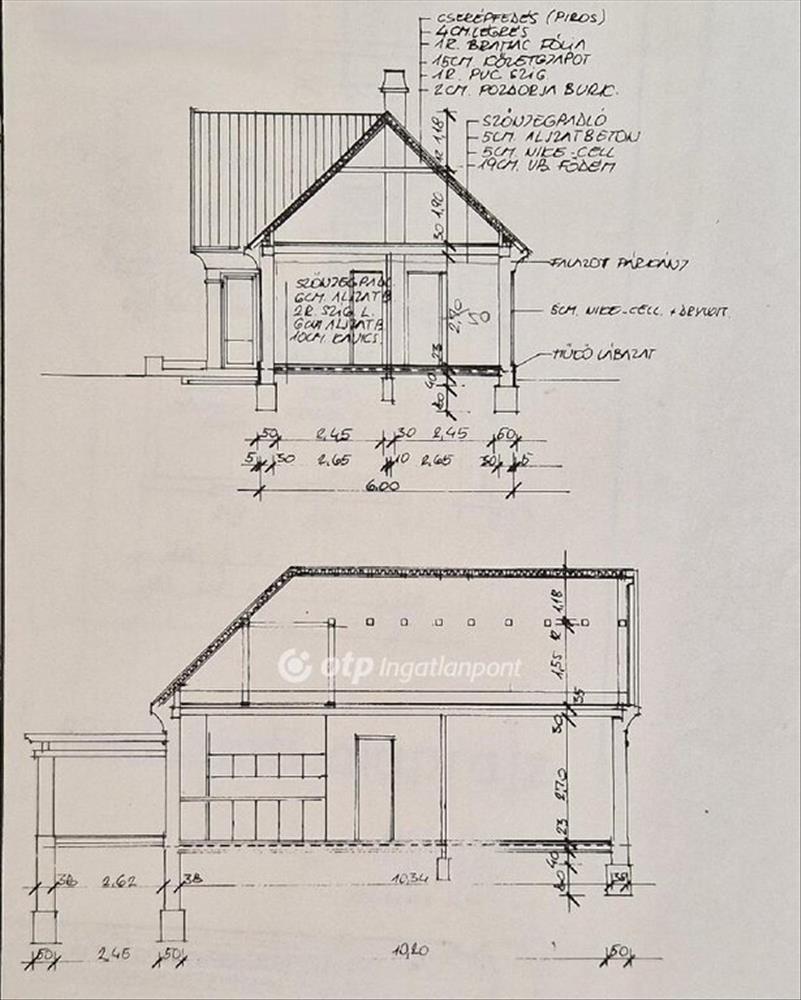 CSERÉPFEDÉS (PIROS)
4CM. LÉGRÉS
1R. BRAMAC FÓLIA
15CM. KŐZETGYAPOT
1R. PVC SZIG.
2CM. POZDORJA BURK.
SZŐNYEGPADLÓ
5CM. ALJZATBETON
5CM. NIKE-CELL
19CM. VB. FÖDÉM
1,18
12
1,90
30
FALAZOTT PÁRKÁNY
SZŐNYEGPADL.
6CM. ALJZATB.
2R. SZIG. L.
6CM ALJZATB.
10CM. KAVICS.
2,70
5CM. NIKE-CELL + DRYVIT.
23
MŰKŐ LÁBAZAT
40
80
50 2,45 30 2,45 50
5 30 2.65 10 2.65 30 5
6.00
1,18
12
1,55
otp Ingatlanpont
35
30
2,70
23
40
80
38 2.62 38 10,34 38
50 2,45 50 10,20 50